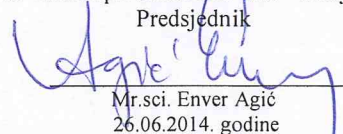 Predsjednik
Agić Enver
Mr.sci. Enver Agić
26.06.2014. godine